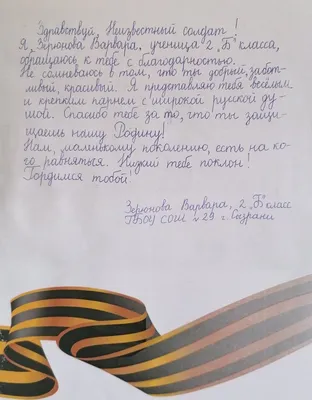 Здравствуй, Неизвестный солдат!
Я, Зернова Варвара, ученица 2 „Б" класса,
обращаюсь к тебе с благодарностью.
Не сомневаюсь в том, что ты добрый, забот-
ливый, красивый. Я представляю тебя весёлым
и крепким парнем с широкой русской ду-
шой. Спасибо тебе за то, что ты защи-
щаешь нашу Родину!
Нам, маленькому поколению, есть на ко-
го равняться. Низкий тебе поклон!
Гордимся тобой!
Зернова Варвара, 2 „Б" класс
ГБОУ СОШ №29 г. Сызрани